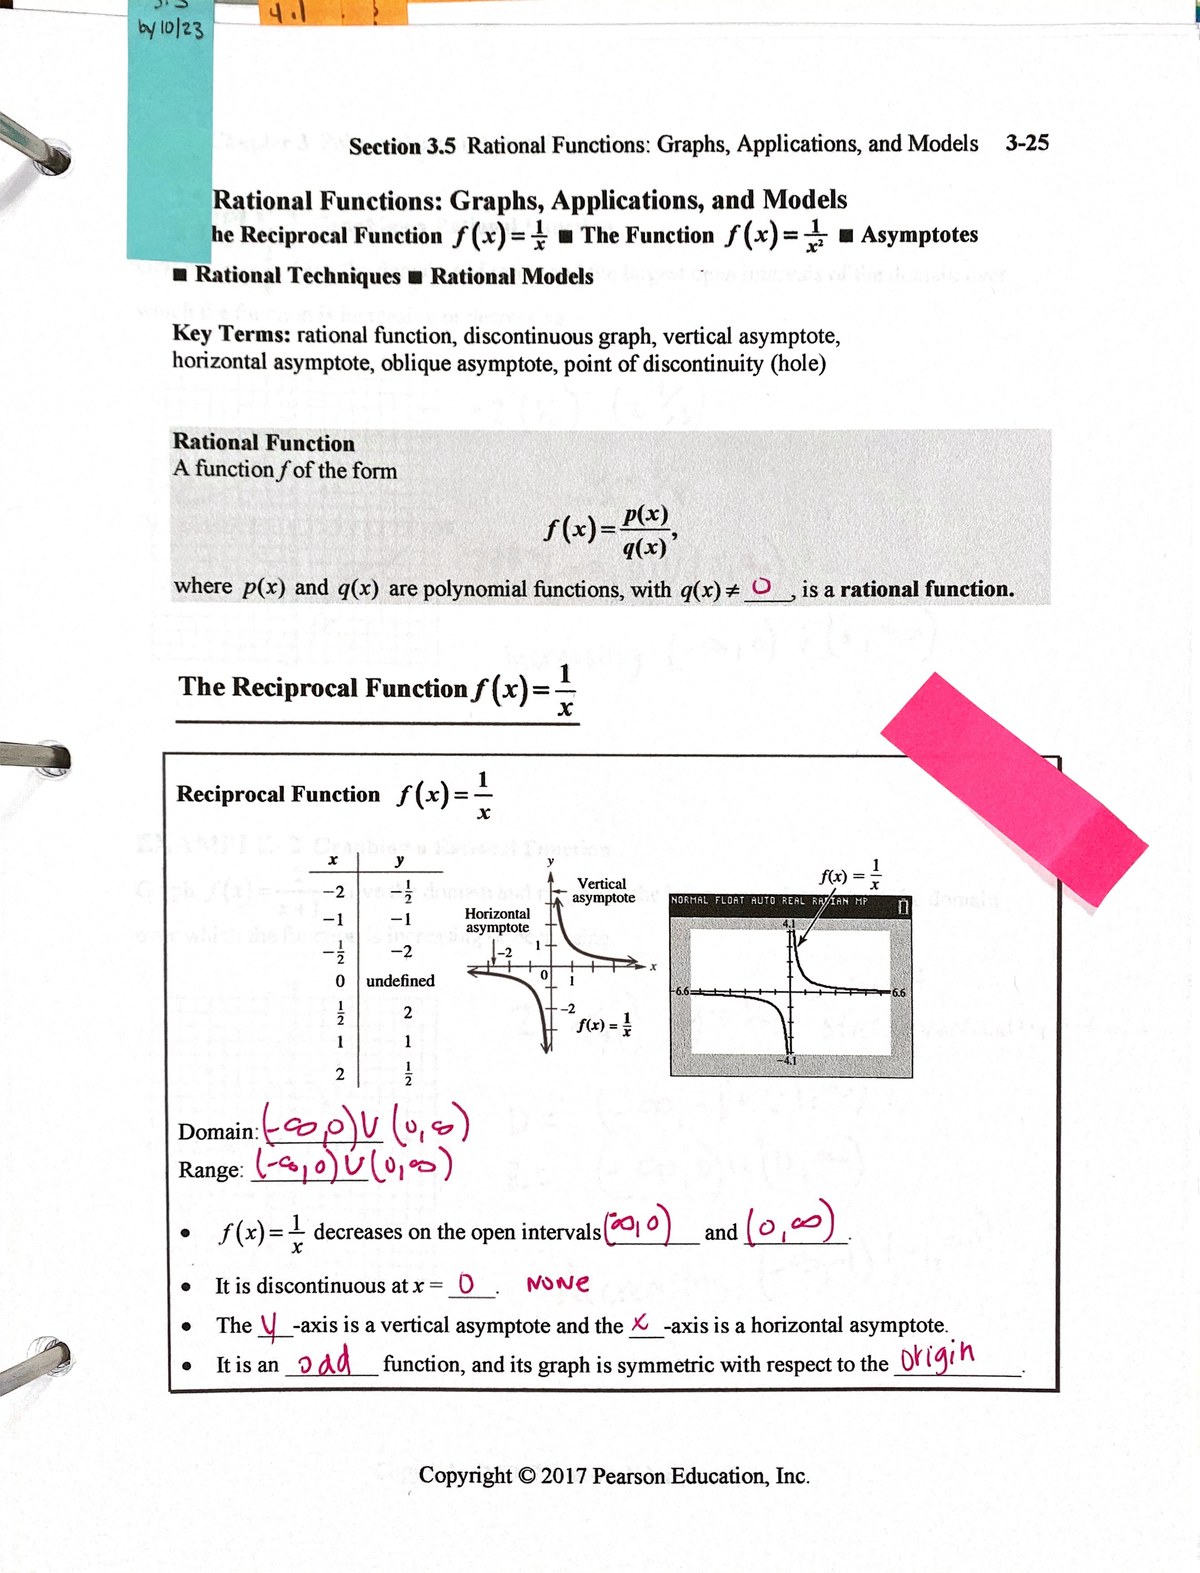 by 10/23
4.1
Section 3.5 Rational Functions: Graphs, Applications, and Models 3-25
Rational Functions: Graphs, Applications, and Models
he Reciprocal Function f(x) = 1/x ■ The Function f(x) = 1/x² ■ Asymptotes
■ Rational Techniques ■ Rational Models
Key Terms: rational function, discontinuous graph, vertical asymptote,
horizontal asymptote, oblique asymptote, point of discontinuity (hole)
Rational Function
A function f of the form
f(x) = p(x)/q(x),
where p(x) and q(x) are polynomial functions, with q(x) ≠ 0, is a rational function.
The Reciprocal Function f(x) = 1/x
Reciprocal Function f(x) = 1/x
x y
-2 -1/2
-1 -1
-1/2 -2
0 undefined
1/2 2
1 1
2 1/2
y
Vertical
asymptote
Horizontal
asymptote
-2
1
x
0
1
-2
f(x) = 1/x
f(x) = 1/x
NORMAL FLOAT AUTO REAL RADIAN MP
4.1
-6.6
6.6
-4.1
Domain: (-∞,0)∪(0,∞)
Range: (-∞,0)∪(0,∞)
• f(x) = 1/x decreases on the open intervals (-∞,0) and (0,∞).
• It is discontinuous at x = 0. NONE
• The y-axis is a vertical asymptote and the x-axis is a horizontal asymptote.
• It is an odd function, and its graph is symmetric with respect to the origin.
Copyright © 2017 Pearson Education, Inc.